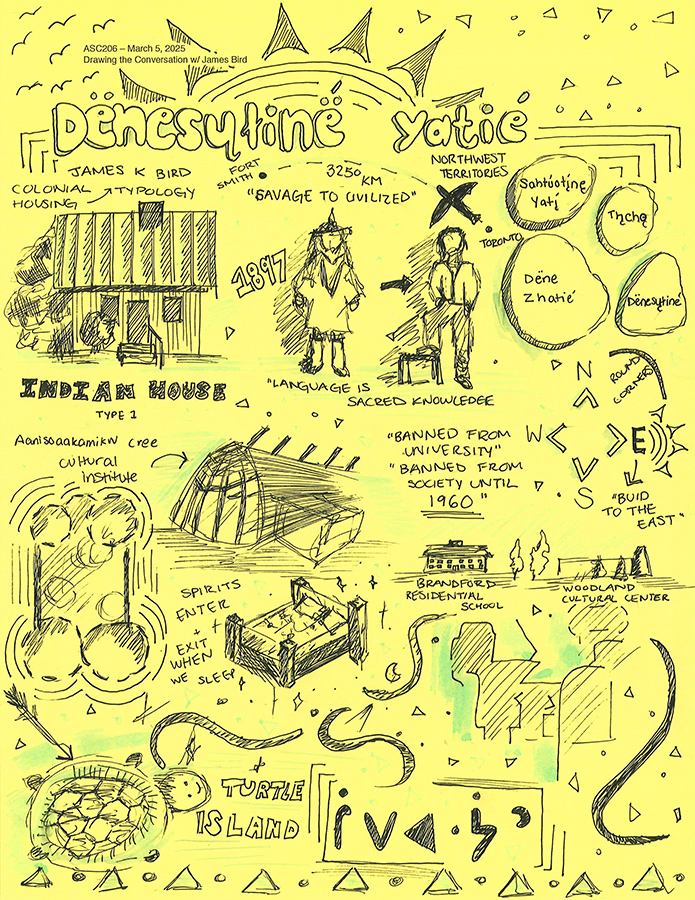 ASC206 – March 5, 2025
Drawing the Conversation w/ James Bird
Dënesųłinë́ yatié
JAMES K BIRD
COLONIAL → TYPOLOGY
HOUSING
FORT
SMITH
3250 KM
"SAVAGE TO CIVILIZED"
NORTHWEST
TERRITORIES
TORONTO
1897
Sahtúotįne
Yatí
Tłıchǫ
Dëne
Zhatıé
Dënesųłiné
INDIAN HOUSE
TYPE 1
"LANGUAGE IS
SACRED KNOWLEDGE
N
W
E
S
ROUND
CORNERS
"BUID
TO THE
EAST"
Cree
Cultural
Institute
"BANNED FROM
UNIVERSITY"
"BANNED FROM
SOCIETY UNTIL
1960"
BRANDFORD
RESIDENTIAL
SCHOOL
WOODLAND
CULTURAL CENTER
SPIRITS
ENTER
+
EXIT
WHEN
WE SLEEP
TURTLE
ISLAND